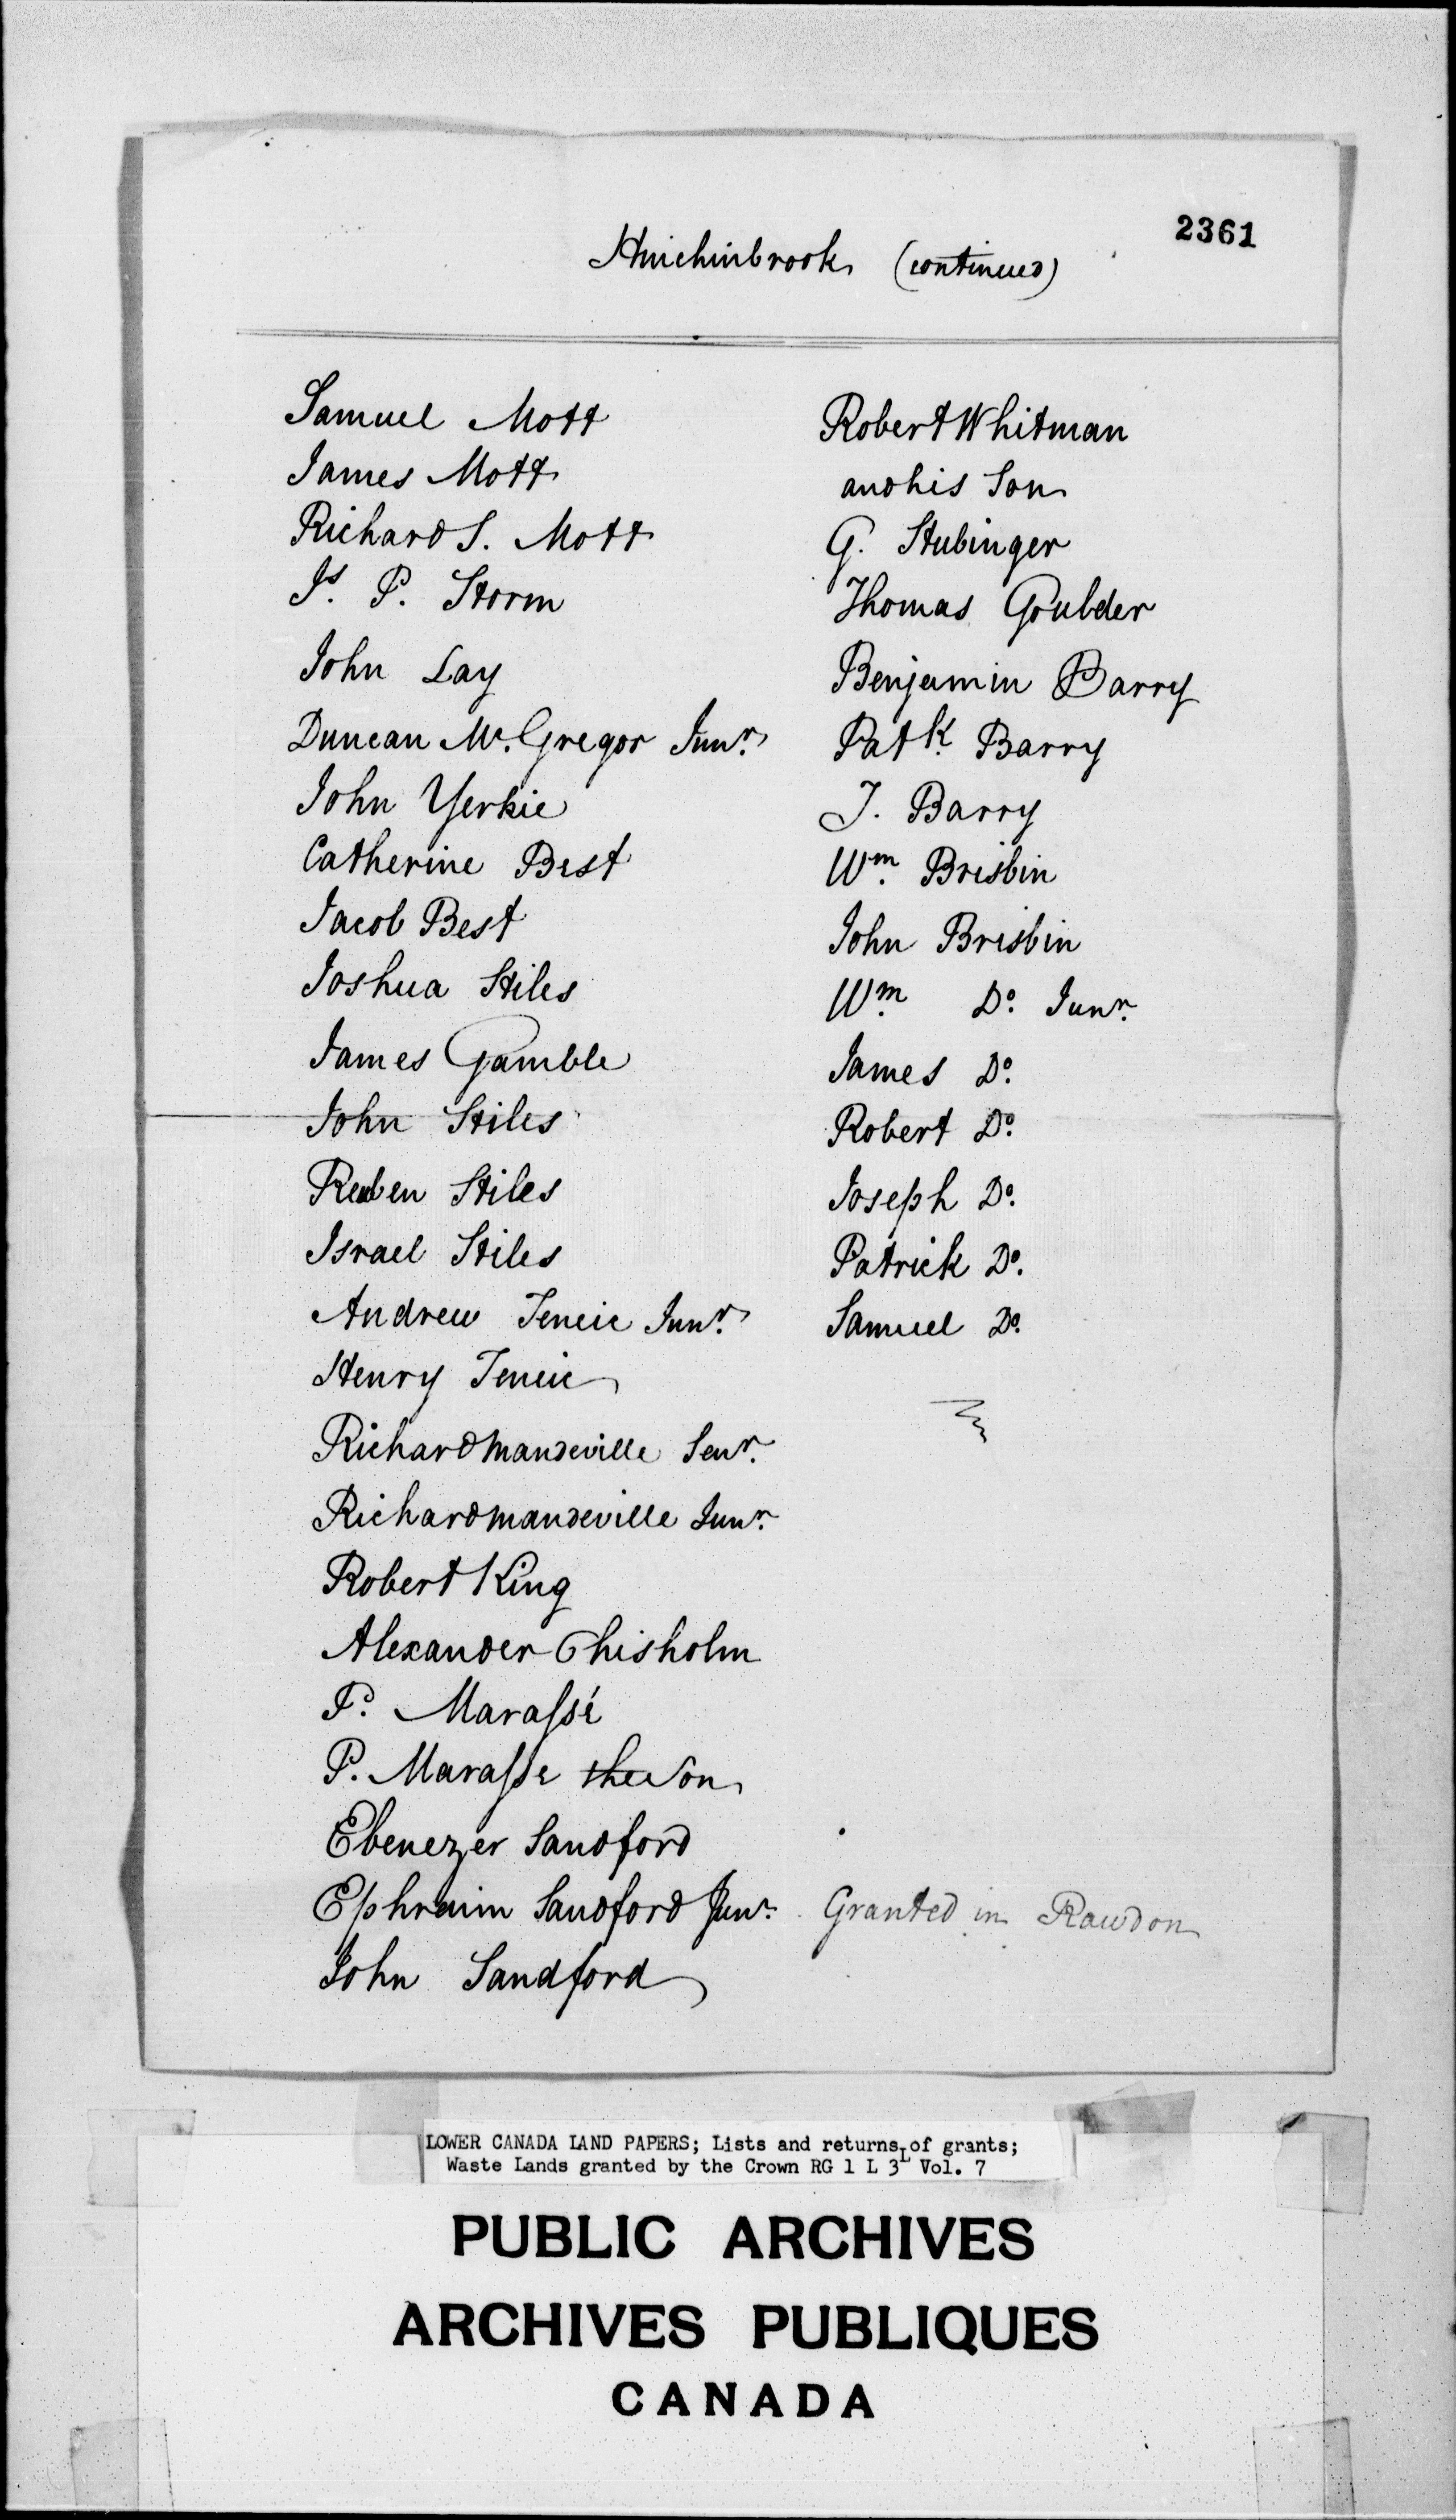 2361
Hinchinbrook (continued)
Samuel Mott
James Mott
Richard S. Mott
Js. P. Storm
John Lay
Duncan Mc.Gregor Junr.
John Yerkie
Catherine Best
Jacob Best
Joshua Stiles
James Gamble
John Stiles
Reuben Stiles
Israel Stiles
Andrew Teneic Junr.
Henry Teneic
Richard Mandeville Senr.
Richard Mandeville Junr.
Robert King
Alexander Chisholm
P. Marassé
P. Marasse the Son
Ebenezer Sandford
Ephraim Sandford Junr. Granted in Rawdon
John Sandford
Robert Whitman
and his Son
G. Stubinger
Thomas Goulder
Benjamin Barry
Patk. Barry
J. Barry
Wm. Brisbin
John Brisbin
Wm. Do. Junr.
James Do.
Robert Do.
Joseph Do.
Patrick Do.
Samuel Do.
LOWER CANADA LAND PAPERS; Lists and returns of grants;
Waste Lands granted by the Crown RG 1 L 3L Vol. 7
PUBLIC ARCHIVES
ARCHIVES PUBLIQUES
CANADA